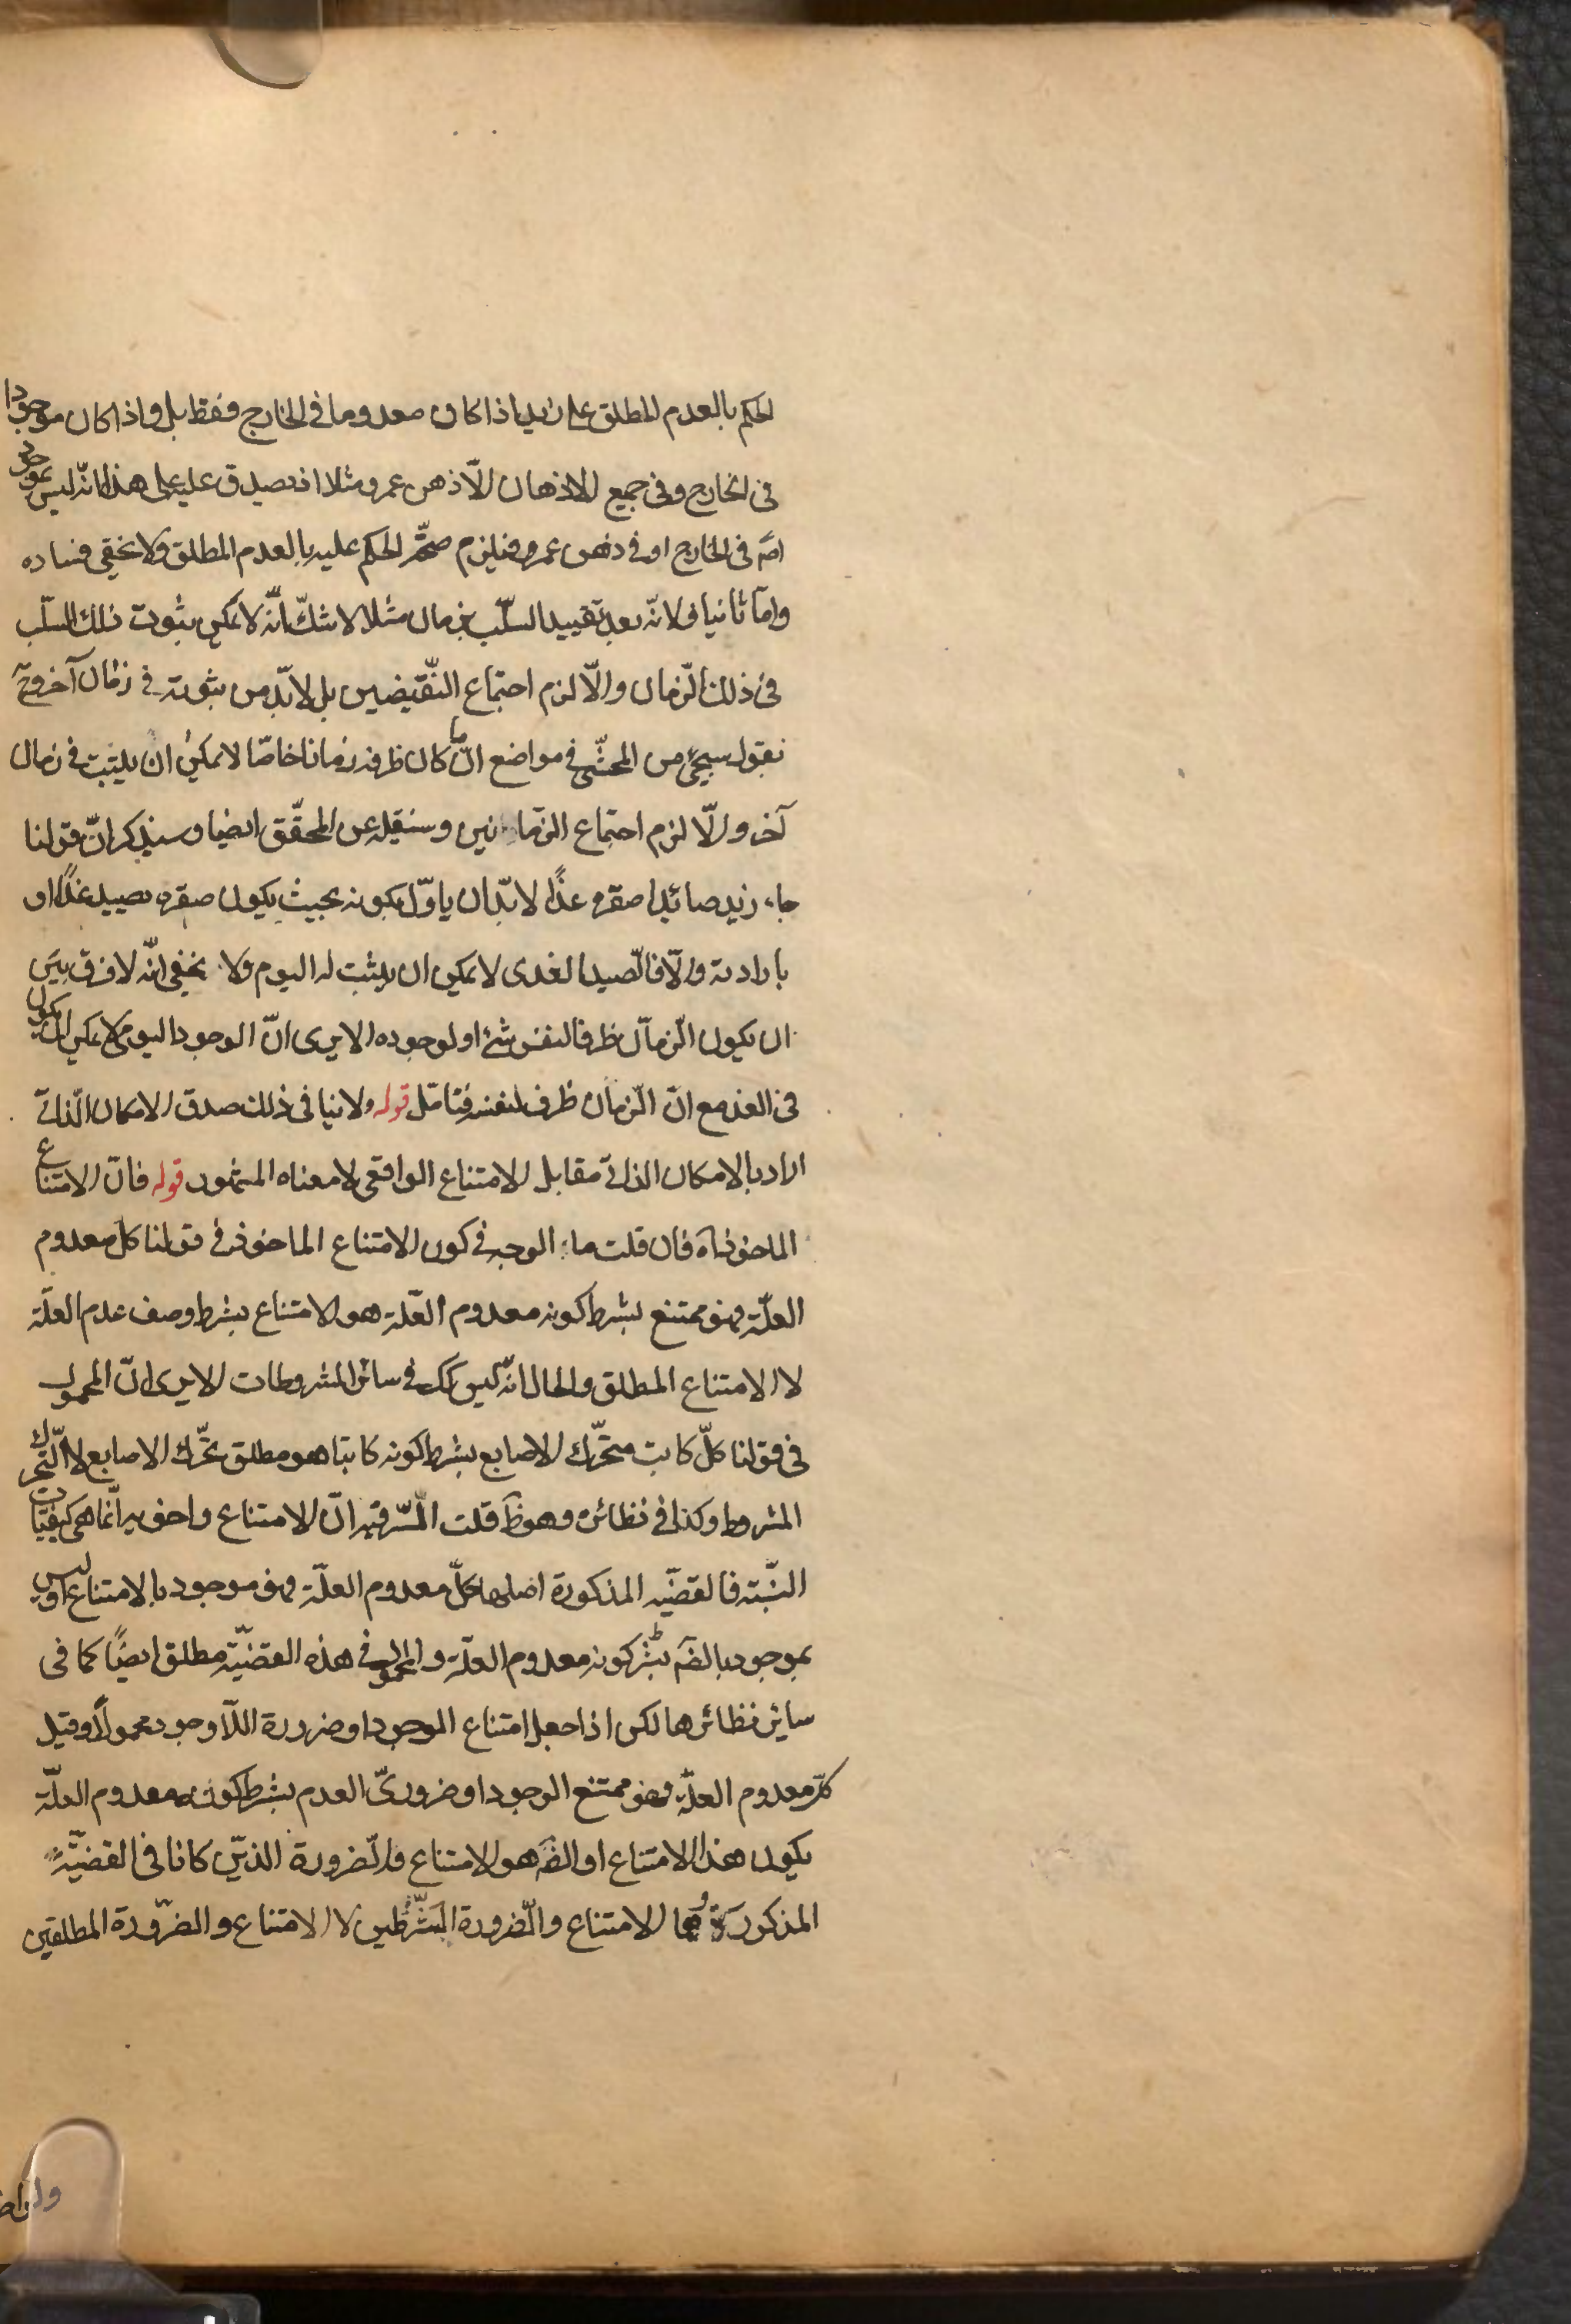 الحكم بالعدم المطلق على زيد اذا كان معدوما فى الخارج وفقط بل واذا كان موجودا
فى الخارج وفى جميع الاذهان الّا ذهن عمرو مثلا اذ يصدق عليه على هذا انّه ليس بموجود
امّا فى الخارج او فى ذهن عمرو فيلزم صحّة الحكم عليه بالعدم المطلق ولا يخفى فساده
وامّا ثانيا فلانّه بعد تقييد السّلب بزمان مثلا لا شكّ انّه لا يمكن ثبوت ذلك السّلب
فى ذلك الزّمان والّا لزم اجتماع النّقيضين بل لابدّ من ثبوته فى زمان آخر وح
نقول سيجئ من المحشّى فى مواضع انّ ما كان ظرفه زمانا خاصّا لا يمكن ان يثبت فى زمان
آخر والّا لزم اجتماع الزمانين وسننقله عن المحقّق ايضا وسيذكر انّ قولنا
جاء زيد صائدا صقره غدًا لابدّ ان ياوّل بكونه بحيث يكون صقره يصيد غدًا او
بارادته والّا فالصّيد الغدى لا يمكن ان يثبت له اليوم ولا يخفى انّه لا فرق بين
ان يكون الزّمان ظرفا لنفس شئ او لوجوده الا يرى انّ الوجود اليومى لا يمكن ان يكون
فى الغد مع انّ الزّمان ظرف لنفسه فتامّل قوله ولا ينافى ذلك صدق الامكان الذّاتى
اراد بالامكان الذاتى مقابل الامتناع الواقعى لا معناه المشهور قوله فانّ الامتناع
الماخوذ اه فان قلت ما الوجه فى كون الامتناع الماخوذ فى قولنا كل معدوم
العلّة فهو ممتنع بشرط كونه معدوم العلّة هو الامتناع بشرط وصف عدم العلّة
لا الامتناع المطلق والحال انّه ليس كك فى سائر المشروطات الا يرى انّ المحمول
فى قولنا كلّ كاتب متحرّك الاصابع بشرط كونه كاتبا هو مطلق تحرّك الاصابع لا التّحرك
المشروط وكذا فى نظائره وهو ظ قلت السّرّ فيه انّ الامتناع واخويه انّما هى كيفيّات
النّسبة فالقضيّه المذكورة اصلها كلّ معدوم العلّة فهو موجود بالامتناع او ليس
بموجود بالضّه بشرط كونه معدوم العلّة والمحمول فى هذه القضيّة مطلق ايضًا كما فى
سائر نظائرها لكن اذا جعل امتناع الوجود او ضرورة اللّا وجود محمولًا وقيل
كلّ معدوم العلّة فهو ممتنع الوجود او ضرورىّ العدم بشرط كونه معدوم العلّة
يكون هذا الامتناع او الضّه هو الامتناع والضّرورة الذين كانا فى القضيّة
المذكورة وهما الامتناع والضّرورة المشرطين لا الامتناع والضّرورة المطلقين